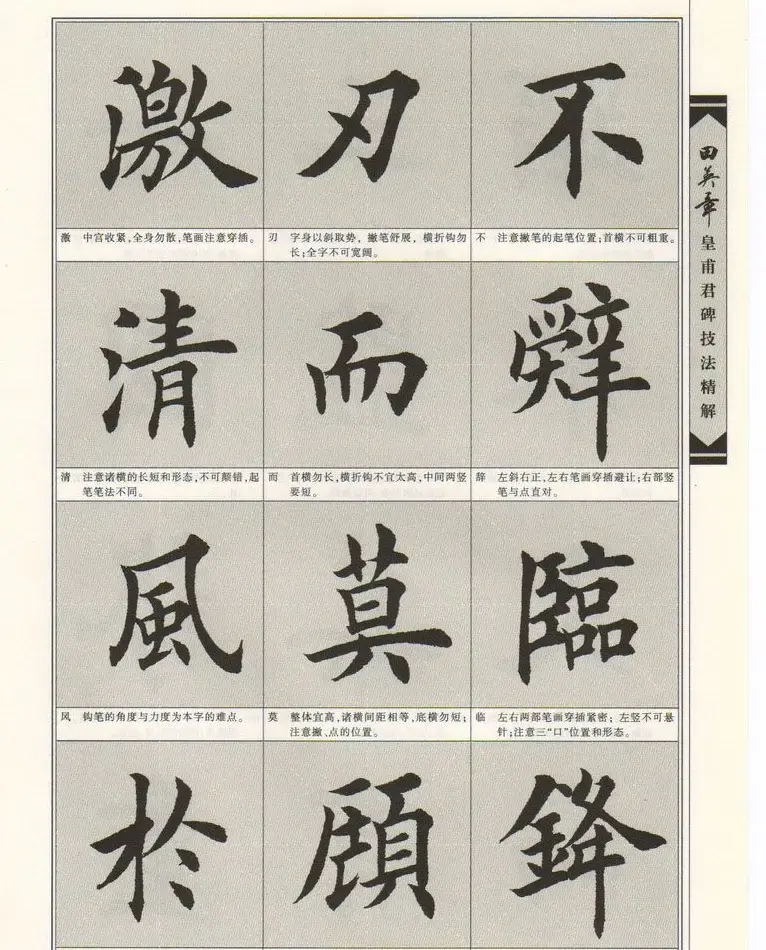 田英章 皇甫君碑技法精解
不
不 注意撇笔的起笔位置;首横不可粗重。
辭
辞 左斜右正,左右笔画穿插避让;右部竖
笔与点直对。
臨
临 左右两部笔画穿插紧密;左竖不可悬
针;注意三“口”位置和形态。
鋒
刃
刃 字身以斜取势,撇笔舒展,横折钩勿
长;全字不可宽阔。
而
而 首横勿长,横折钩不宜太高,中间两竖
要短。
莫
莫 整体宜高,诸横间距相等,底横勿短;
注意撇、点的位置。
顧
激
激 中宫收紧,全身勿散,笔画注意穿插。
清
清 注意诸横的长短和形态,不可颠错,起
笔笔法不同。
風
风 钩笔的角度与力度为本字的难点。
於